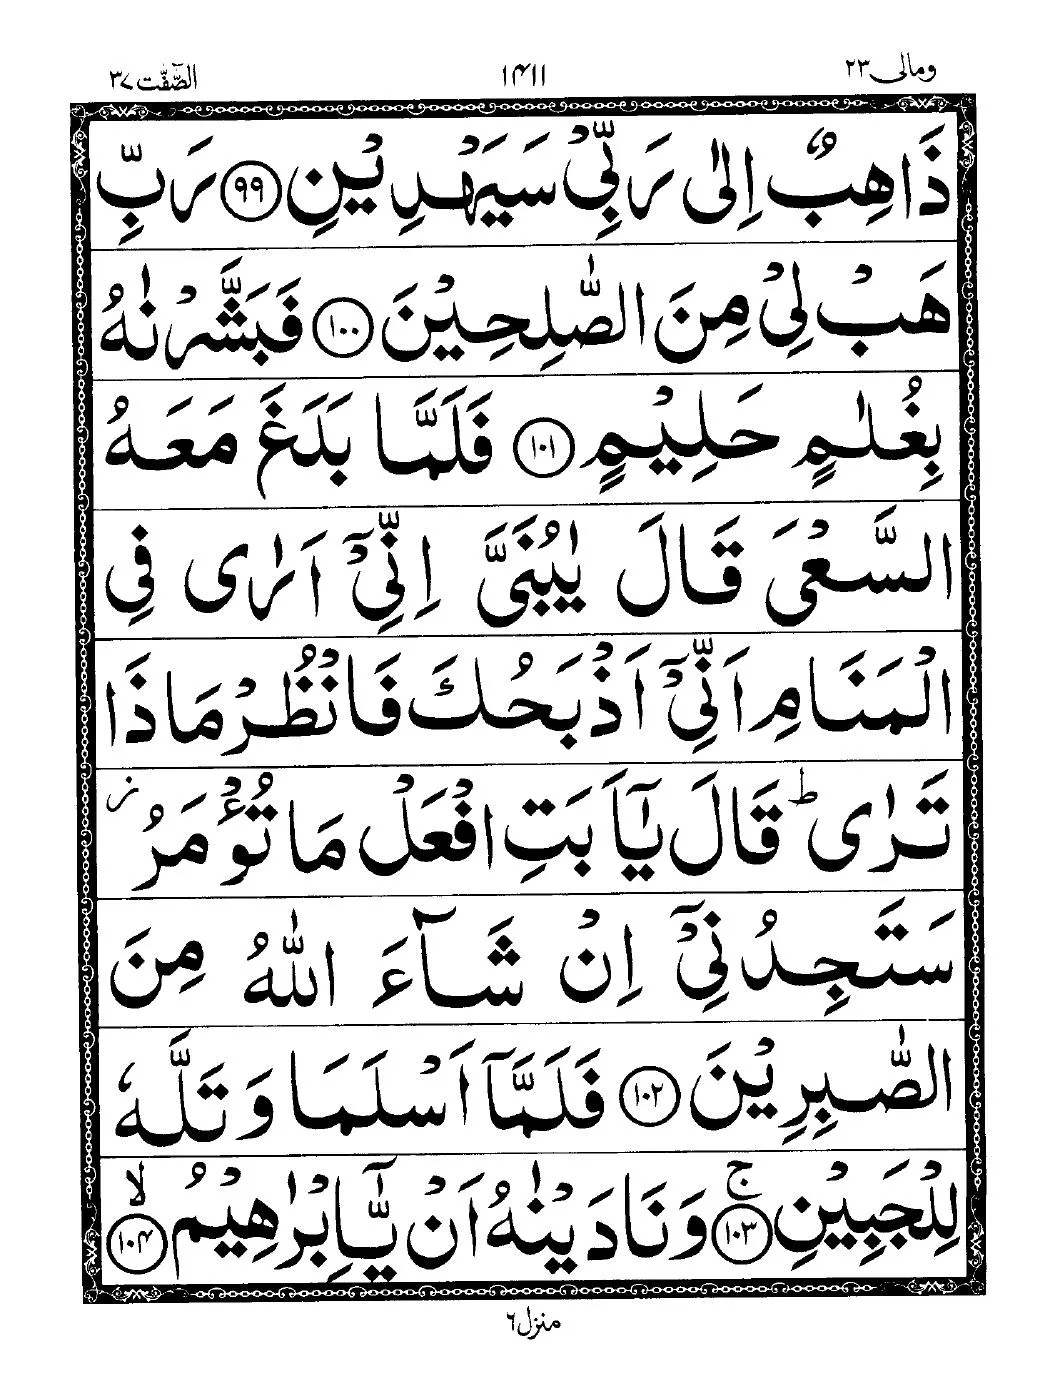 ومالی ٢٣
١٤١١
الصّٰٓفّٰت ٣٧
ذَاهِبٌ اِلٰى رَبِّيْ سَيَهْدِيْنِ ﴿٩٩﴾ رَبِّ
هَبْ لِيْ مِنَ الصّٰلِحِيْنَ ﴿١٠٠﴾ فَبَشَّرْنٰهُ
بِغُلٰمٍ حَلِيْمٍ ﴿١٠١﴾ فَلَمَّا بَلَغَ مَعَهُ
السَّعْيَ قَالَ يٰبُنَيَّ اِنِّيْٓ اَرٰى فِي
الْمَنَامِ اَنِّيْٓ اَذْبَحُكَ فَانْظُرْ مَاذَا
تَرٰى ؕ قَالَ يٰٓاَبَتِ افْعَلْ مَا تُؤْمَرُ ؗ
سَتَجِدُنِيْٓ اِنْ شَآءَ اللّٰهُ مِنَ
الصّٰبِرِيْنَ ﴿١٠٢﴾ فَلَمَّآ اَسْلَمَا وَتَلَّهٗ
لِلْجَبِيْنِ ﴿١٠٣﴾ ۚ وَنَادَيْنٰهُ اَنْ يّٰٓاِبْرٰهِيْمُ ﴿١٠٤﴾ ۙ
منزل ٦